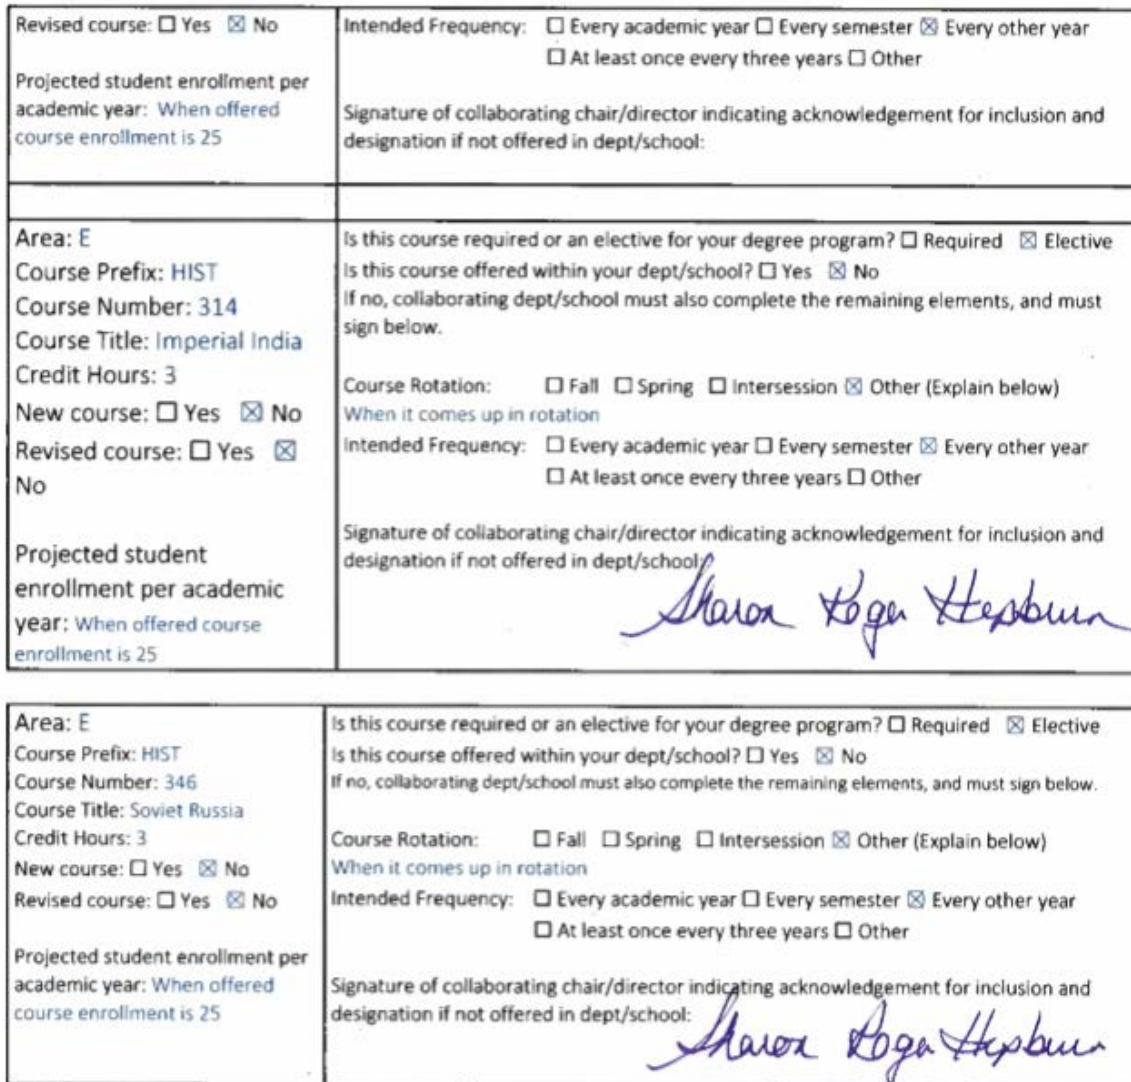 Revised course: ☐ Yes ☒ No
Projected student enrollment per
academic year: When offered
course enrollment is 25
Intended Frequency: ☐ Every academic year ☐ Every semester ☒ Every other year
☐ At least once every three years ☐ Other
Signature of collaborating chair/director indicating acknowledgement for inclusion and
designation if not offered in dept/school:
Area: E
Course Prefix: HIST
Course Number: 314
Course Title: Imperial India
Credit Hours: 3
New course: ☐ Yes ☒ No
Revised course: ☐ Yes ☒
No
Projected student
enrollment per academic
year: When offered course
enrollment is 25
Is this course required or an elective for your degree program? ☐ Required ☒ Elective
Is this course offered within your dept/school? ☐ Yes ☒ No
If no, collaborating dept/school must also complete the remaining elements, and must
sign below.
Course Rotation: ☐ Fall ☐ Spring ☐ Intersession ☒ Other (Explain below)
When it comes up in rotation
Intended Frequency: ☐ Every academic year ☐ Every semester ☒ Every other year
☐ At least once every three years ☐ Other
Signature of collaborating chair/director indicating acknowledgement for inclusion and
designation if not offered in dept/school:
Sharon Roger Hepburn
Area: E
Course Prefix: HIST
Course Number: 346
Course Title: Soviet Russia
Credit Hours: 3
New course: ☐ Yes ☒ No
Revised course: ☐ Yes ☒ No
Projected student enrollment per
academic year: When offered
course enrollment is 25
Is this course required or an elective for your degree program? ☐ Required ☒ Elective
Is this course offered within your dept/school? ☐ Yes ☒ No
If no, collaborating dept/school must also complete the remaining elements, and must sign below.
Course Rotation: ☐ Fall ☐ Spring ☐ Intersession ☒ Other (Explain below)
When it comes up in rotation
Intended Frequency: ☐ Every academic year ☐ Every semester ☒ Every other year
☐ At least once every three years ☐ Other
Signature of collaborating chair/director indicating acknowledgement for inclusion and
designation if not offered in dept/school:
Sharon Roger Hepburn